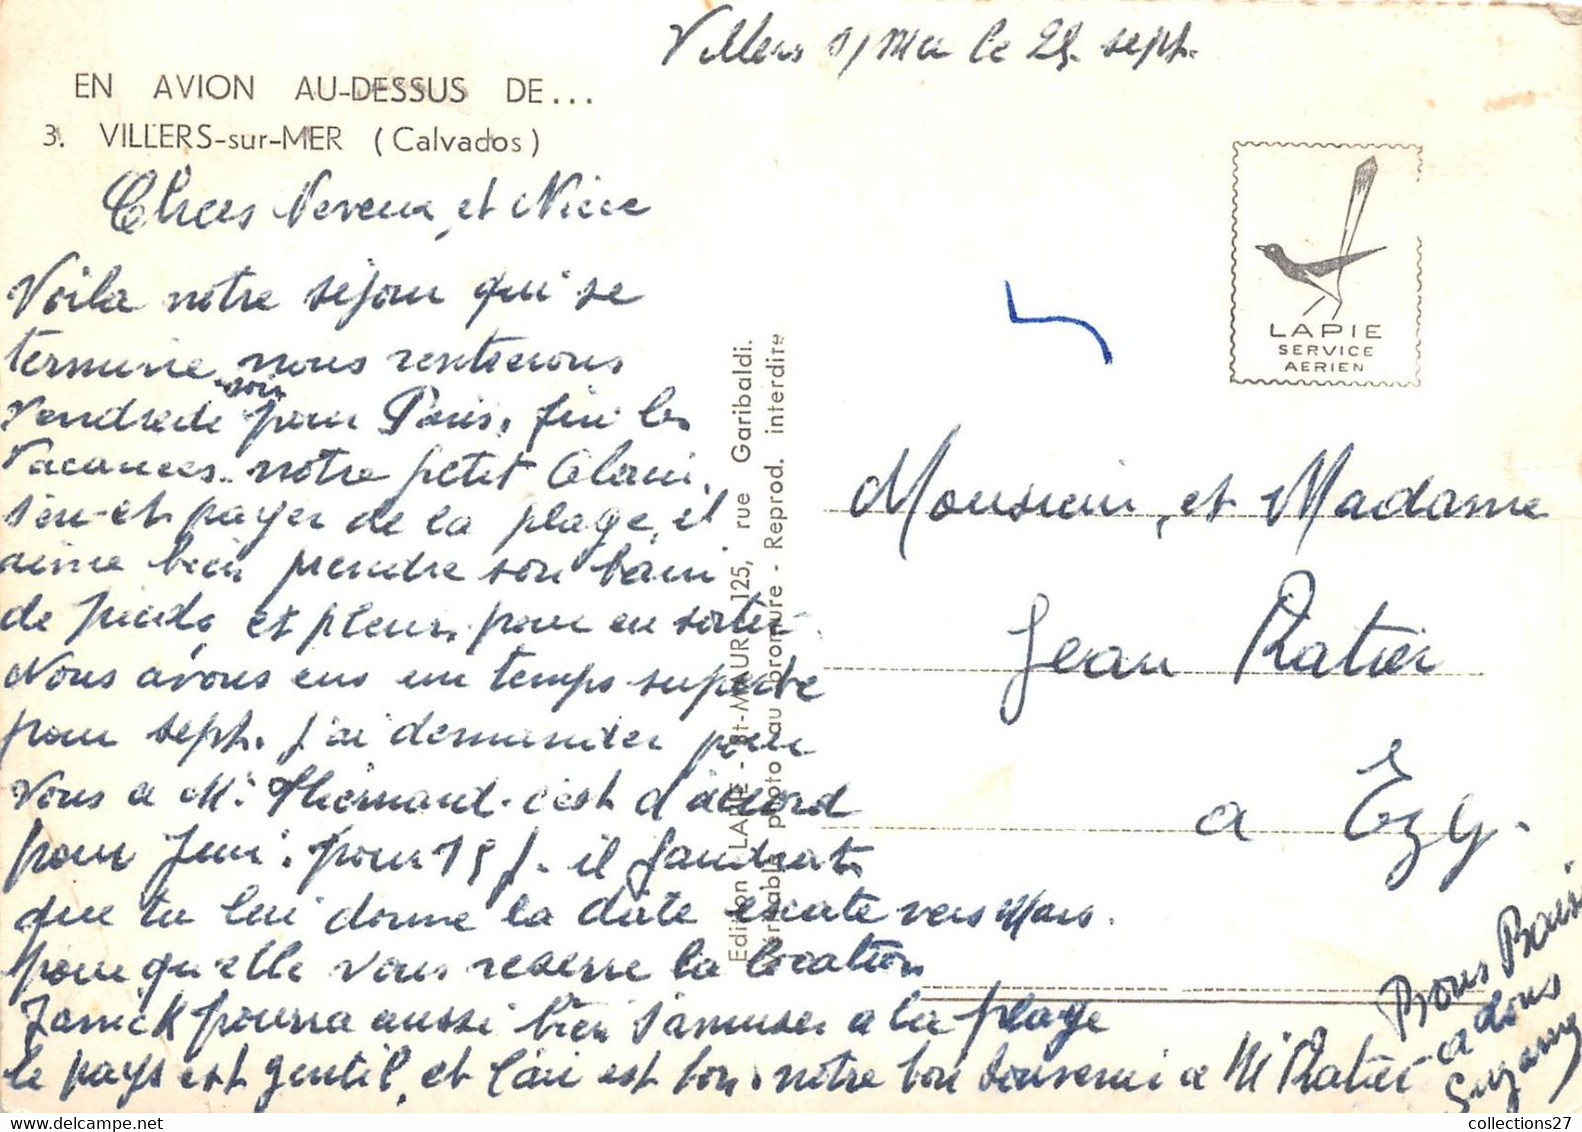 Villers s/ Mer le 25 sept.
EN AVION AU-DESSUS DE...
3. VILLERS-sur-MER (Calvados)
Chers Neveux, et Niece
Voila notre séjour qui se
termine nous rentrerons
vendredi soir pour Paris, fini les
vacances. notre petit Alain.
s'en et payer de la plage, il
aime bien prendre son bain
de pieds, et pleur, pour en sortir.
Nous avons eus un temps superbe
pour sept. J'ai demander pour
vous a Mr c'est d'accord
pour Juin. pour 15 j. il faudrait.
que tu lui donne la date exacte vers Mars.
pour qu'elle vous reserve la location
Janick pourra aussi bien s'amuser a la plage
le pays est gentil, et l'air est bon. notre bon souvenir a Mr Ratier
Bons Baisers
a vous
Suzanne
Edition LAPIE - St-MAUR 125, rue Garibaldi.
Véritable photo au bromure - Reprod. interdite
LAPIE
SERVICE
AERIEN
Monsieur, et Madame
Jean Ratier
a Ezy.
collections27